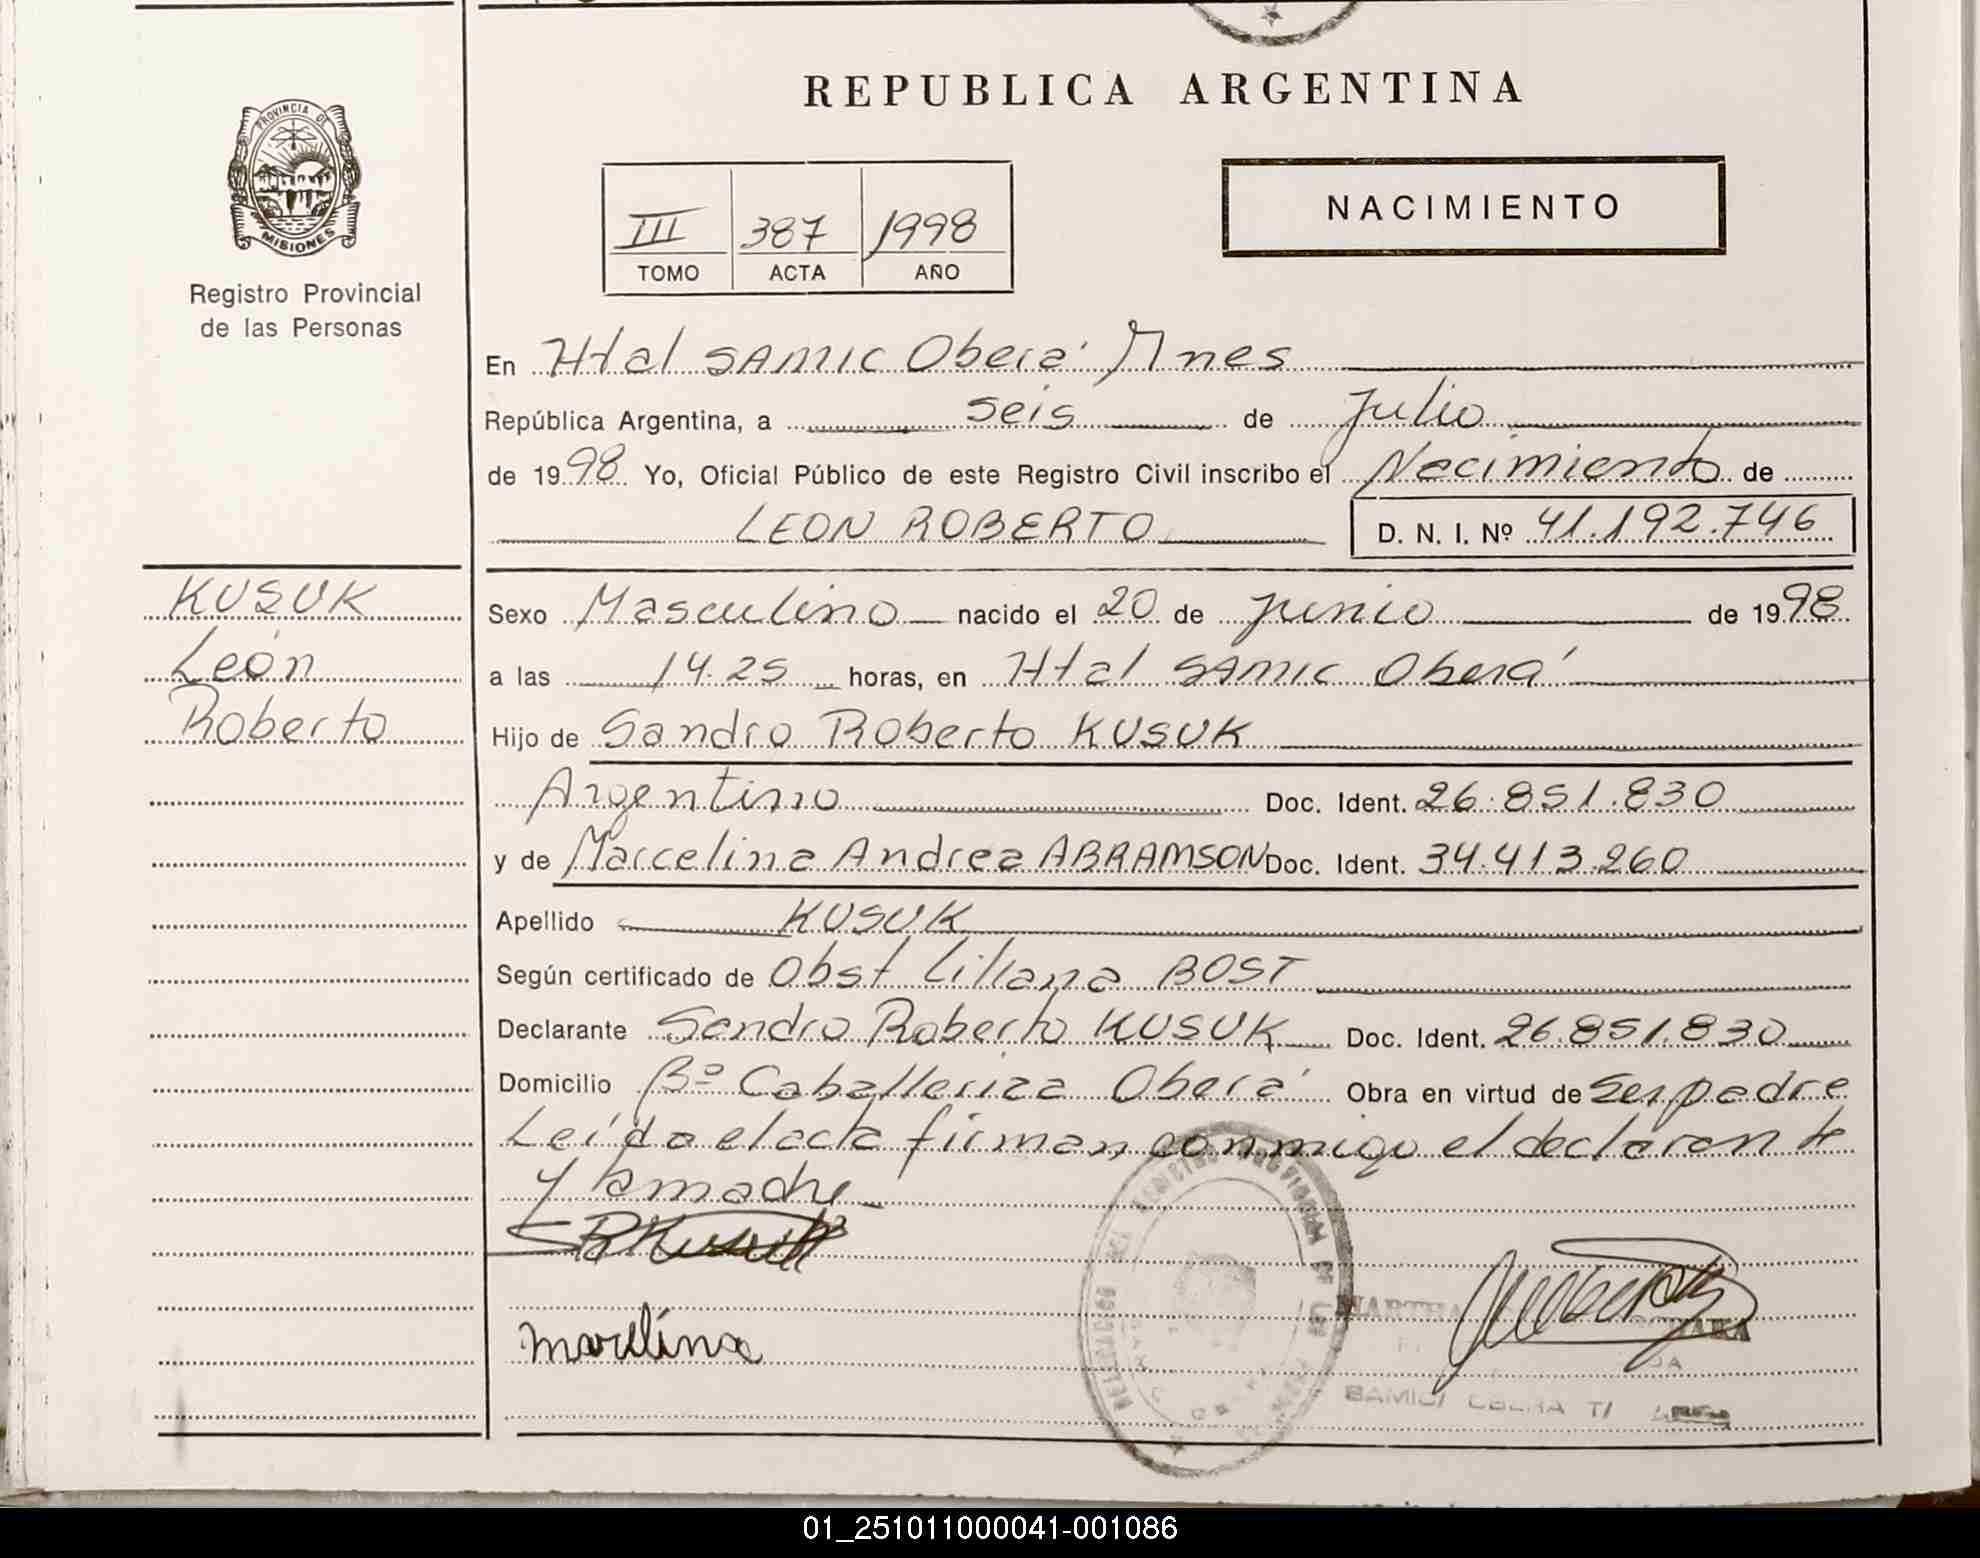 REPUBLICA ARGENTINA
PROVINCIA DE
MISIONES
Registro Provincial
de las Personas
III 387 1998
TOMO ACTA AÑO
NACIMIENTO
En Htal SAMIC Oberá Mnes
República Argentina, a seis de Julio
de 1998 Yo, Oficial Público de este Registro Civil inscribo el Nacimiento de
LEON ROBERTO D. N. I. Nº 41.192.746
KUSUK
León
Roberto
Sexo Masculino nacido el 20 de junio de 1998
a las 14.25 horas, en Htal SAMIC Oberá
Hijo de Sandro Roberto KUSUK
Argentino Doc. Ident. 26.851.830
y de Marcelina Andrea ABRAMSON Doc. Ident. 34.413.260
Apellido KUSUK
Según certificado de Obst Liliana BOST
Declarante Sandro Roberto KUSUK Doc. Ident. 26.851.830
Domicilio Bº Caballeriza Oberá Obra en virtud de ser padre
Leída el acta firman conmigo el declarante
y la madre
MARTHA
01_251011000041-001086